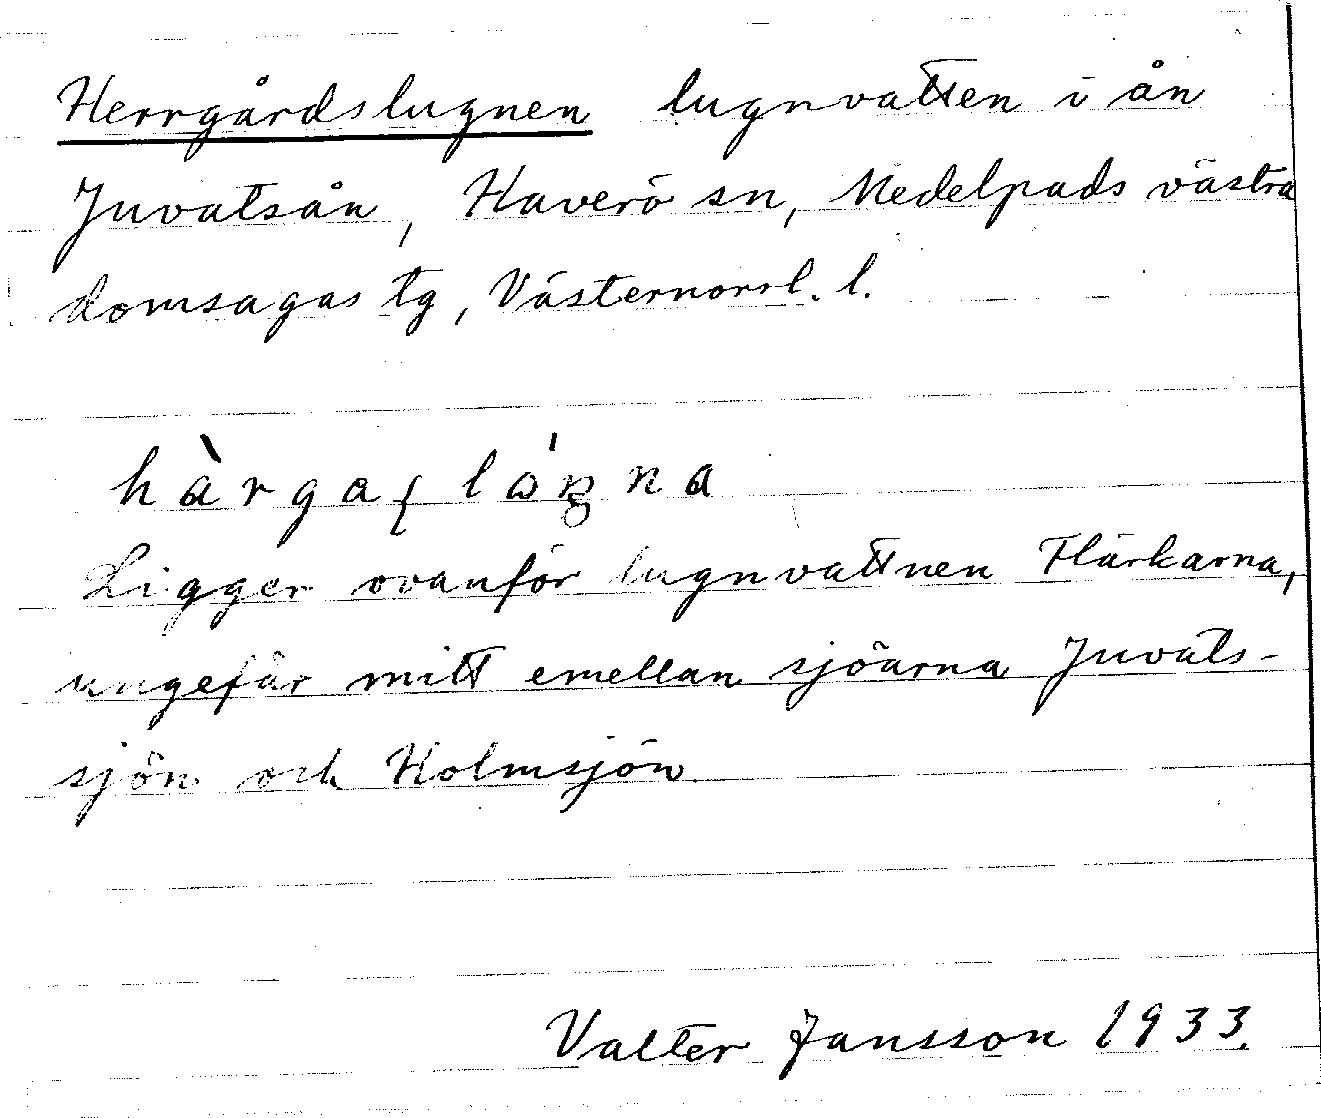 Herrgårdslugnen lugnvatten i ån
Juvatsån, Haverö sn, Medelpads västra
domsagas tg, Västernorrl. l.
Ligger ovanför lugnvattnen Flärkarna,
ungefär mitt emellan sjöarna Juvats-
sjön och Holmsjön
Valter Jansson 1933.